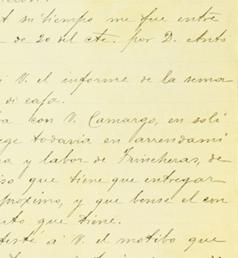 á su tiempo me fue entre
de 20 del cte. por D. Anto
á V. el informe de la sema
di caja.
con V. Camargo, en soli
todavia en arrendami
y labor de Trincheras, de
que tiene que entregar
próximo, y que bense el con
que tiene.
á V. el motibo que